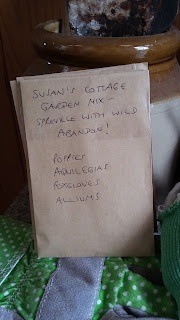 SUSAN'S COTTAGE
GARDEN MIX -
SPRINKLE WITH WILD
ABANDON!
POPPIES
AQUILEGIAS
FOXGLOVES
ALLIUMS